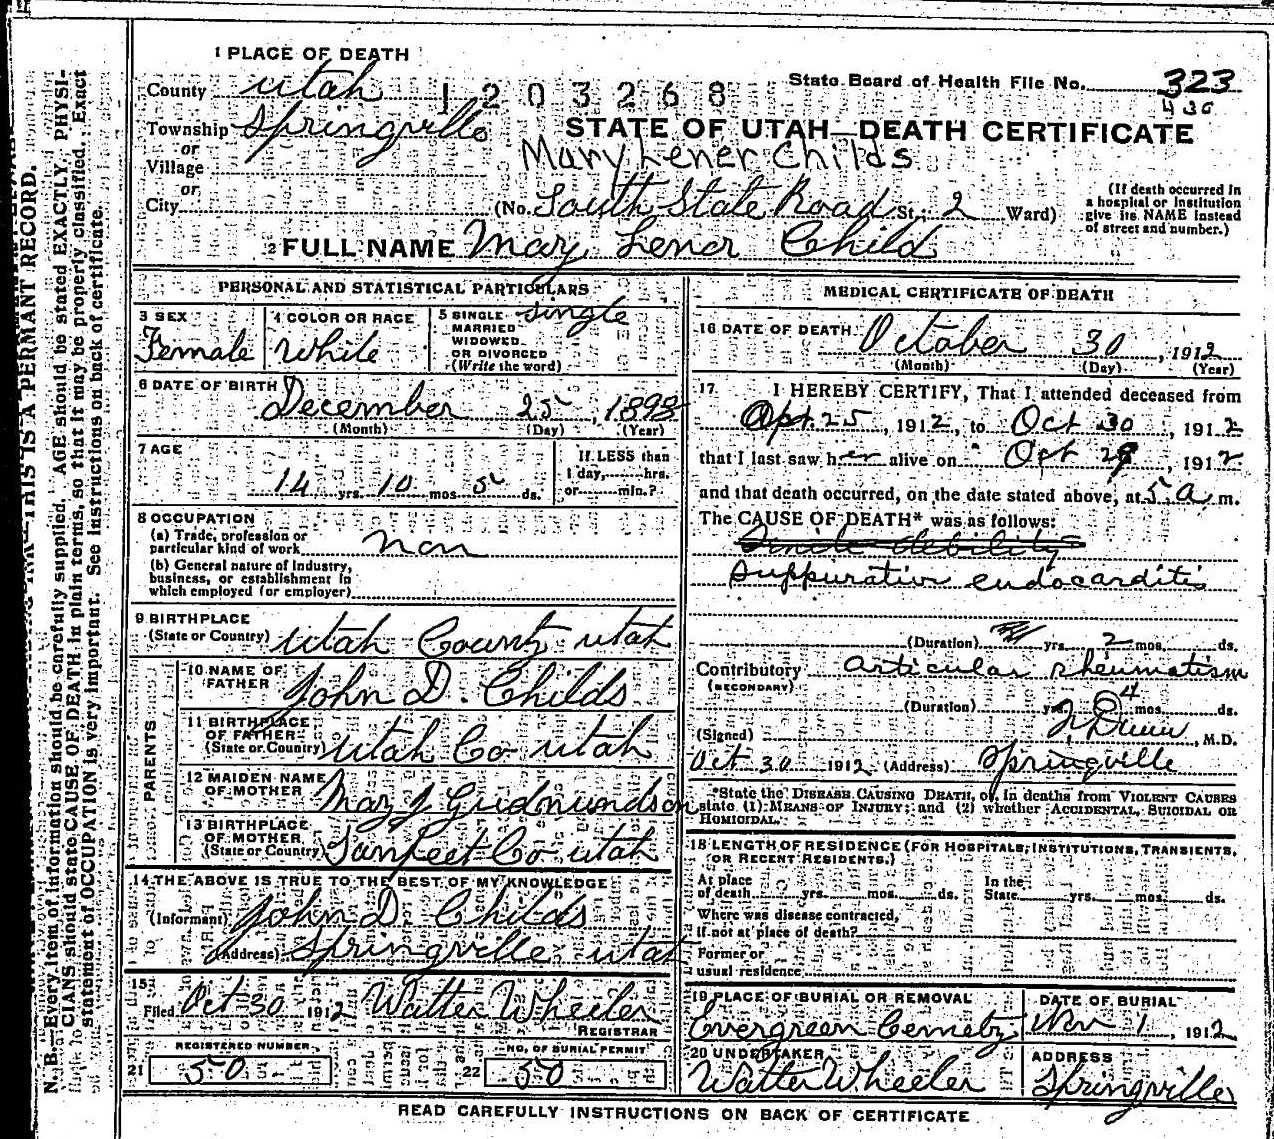 1 PLACE OF DEATH
County Utah 1203268
State Board of Health File No. 323
430
Township Springville
STATE OF UTAH—DEATH CERTIFICATE
or
Village
Mary Lener Childs
or
City
(No. South State Road St.; 2 Ward)
(If death occurred in a hospital or institution give its NAME instead of street and number.)
2 FULL NAME Mary Lener Child
PERSONAL AND STATISTICAL PARTICULARS
3 SEX
Female
4 COLOR OR RACE
White
5 SINGLE MARRIED WIDOWED OR DIVORCED (Write the word)
single
6 DATE OF BIRTH
December 25, 1898
(Month) (Day) (Year)
7 AGE
14 yrs. 10 mos. 5 ds.
If LESS than
1 day, hrs.
or min.?
8 OCCUPATION
(a) Trade, profession or
particular kind of work non
(b) General nature of Industry,
business, or establishment in
which employed (or employer)
9 BIRTHPLACE
(State or Country) Utah County Utah
PARENTS
10 NAME OF FATHER
John D. Childs
11 BIRTHPLACE OF FATHER
(State or Country) Utah Co Utah
12 MAIDEN NAME OF MOTHER
Mary J Gudmundson
13 BIRTHPLACE OF MOTHER
(State or Country) Sanpeet Co Utah
14 THE ABOVE IS TRUE TO THE BEST OF MY KNOWLEDGE
(Informant) John D. Childs
(Address) Springville Utah
15
Filed Oct 30 1912 Walter Wheeler
REGISTRAR
REGISTERED NUMBER
21 50
NO. OF BURIAL PERMIT
22 50
MEDICAL CERTIFICATE OF DEATH
16 DATE OF DEATH
October 30, 1912
(Month) (Day) (Year)
17 I HEREBY CERTIFY, That I attended deceased from
25, 1912, to Oct 30, 1912
that I last saw her alive on Oct 29, 1912
and that death occurred, on the date stated above, at 5 a. m.
The CAUSE OF DEATH* was as follows:
debility
Suppurative endocarditis
(Duration) yrs. 2 mos. ds.
Contributory articular rheumatism
(SECONDARY)
(Duration) yrs. 4 mos. ds.
(Signed) Dunn, M.D.
Oct 30 1912 (Address) Springville
*State the DISEASE CAUSING DEATH, or, in deaths from VIOLENT CAUSES
state (1) MEANS OF INJURY; and (2) whether ACCIDENTAL, SUICIDAL OR
HOMICIDAL.
18 LENGTH OF RESIDENCE (FOR HOSPITALS, INSTITUTIONS, TRANSIENTS,
OR RECENT RESIDENTS.)
At place
of death yrs. mos. ds.
In the
State yrs. mos. ds.
Where was disease contracted,
If not at place of death?
Former or
usual residence
19 PLACE OF BURIAL OR REMOVAL
Evergreen Cemetry
DATE OF BURIAL
Nov 1, 1912
20 UNDERTAKER
Walter Wheeler
ADDRESS
Springville
READ CAREFULLY INSTRUCTIONS ON BACK OF CERTIFICATE
THIS IS A PERMANT RECORD.
N. B.—Every item of information should be carefully supplied. AGE should be stated EXACTLY. PHYSI-
CIANS should state CAUSE OF DEATH in plain terms, so that it may be properly classified. Exact
statement of OCCUPATION is very important. See instructions on back of certificate.